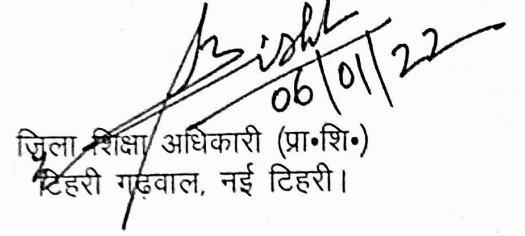 Bisht
06/01/22
जिला शिक्षा अधिकारी (प्रा॰शि॰)
टिहरी गढ़वाल, नई टिहरी।